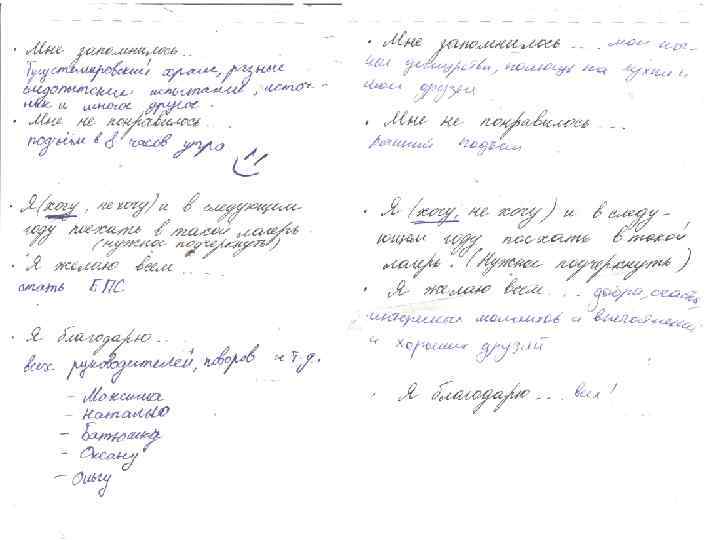 • Мне запомнилось...
храм, разные
испытания, источ-
ники и многое другое.
• Мне не понравилось...
подъём в 8 часов утра
• Я (хочу, не хочу) и в следующем
году поехать в такой лагерь.
(нужное подчеркнуть)
• Я желаю всем....
стать ЕПС
• Я благодарю...
всех руководителей, поворов и т.д.
– Максима
– Наталью
– Батюшку
– Оксану
– Ольгу
• Мне запомнилось.... мои
помощь на кухне и
мои друзья
• Мне не понравилось...
ранний подъём
• Я (хочу, не хочу) и в следу-
ющем году поехать в такой
лагерь. (Нужное подчеркнуть)
• Я желаю всем... добра, счастья,
и впечатлений
и хороших друзей
• Я благодарю... всех!